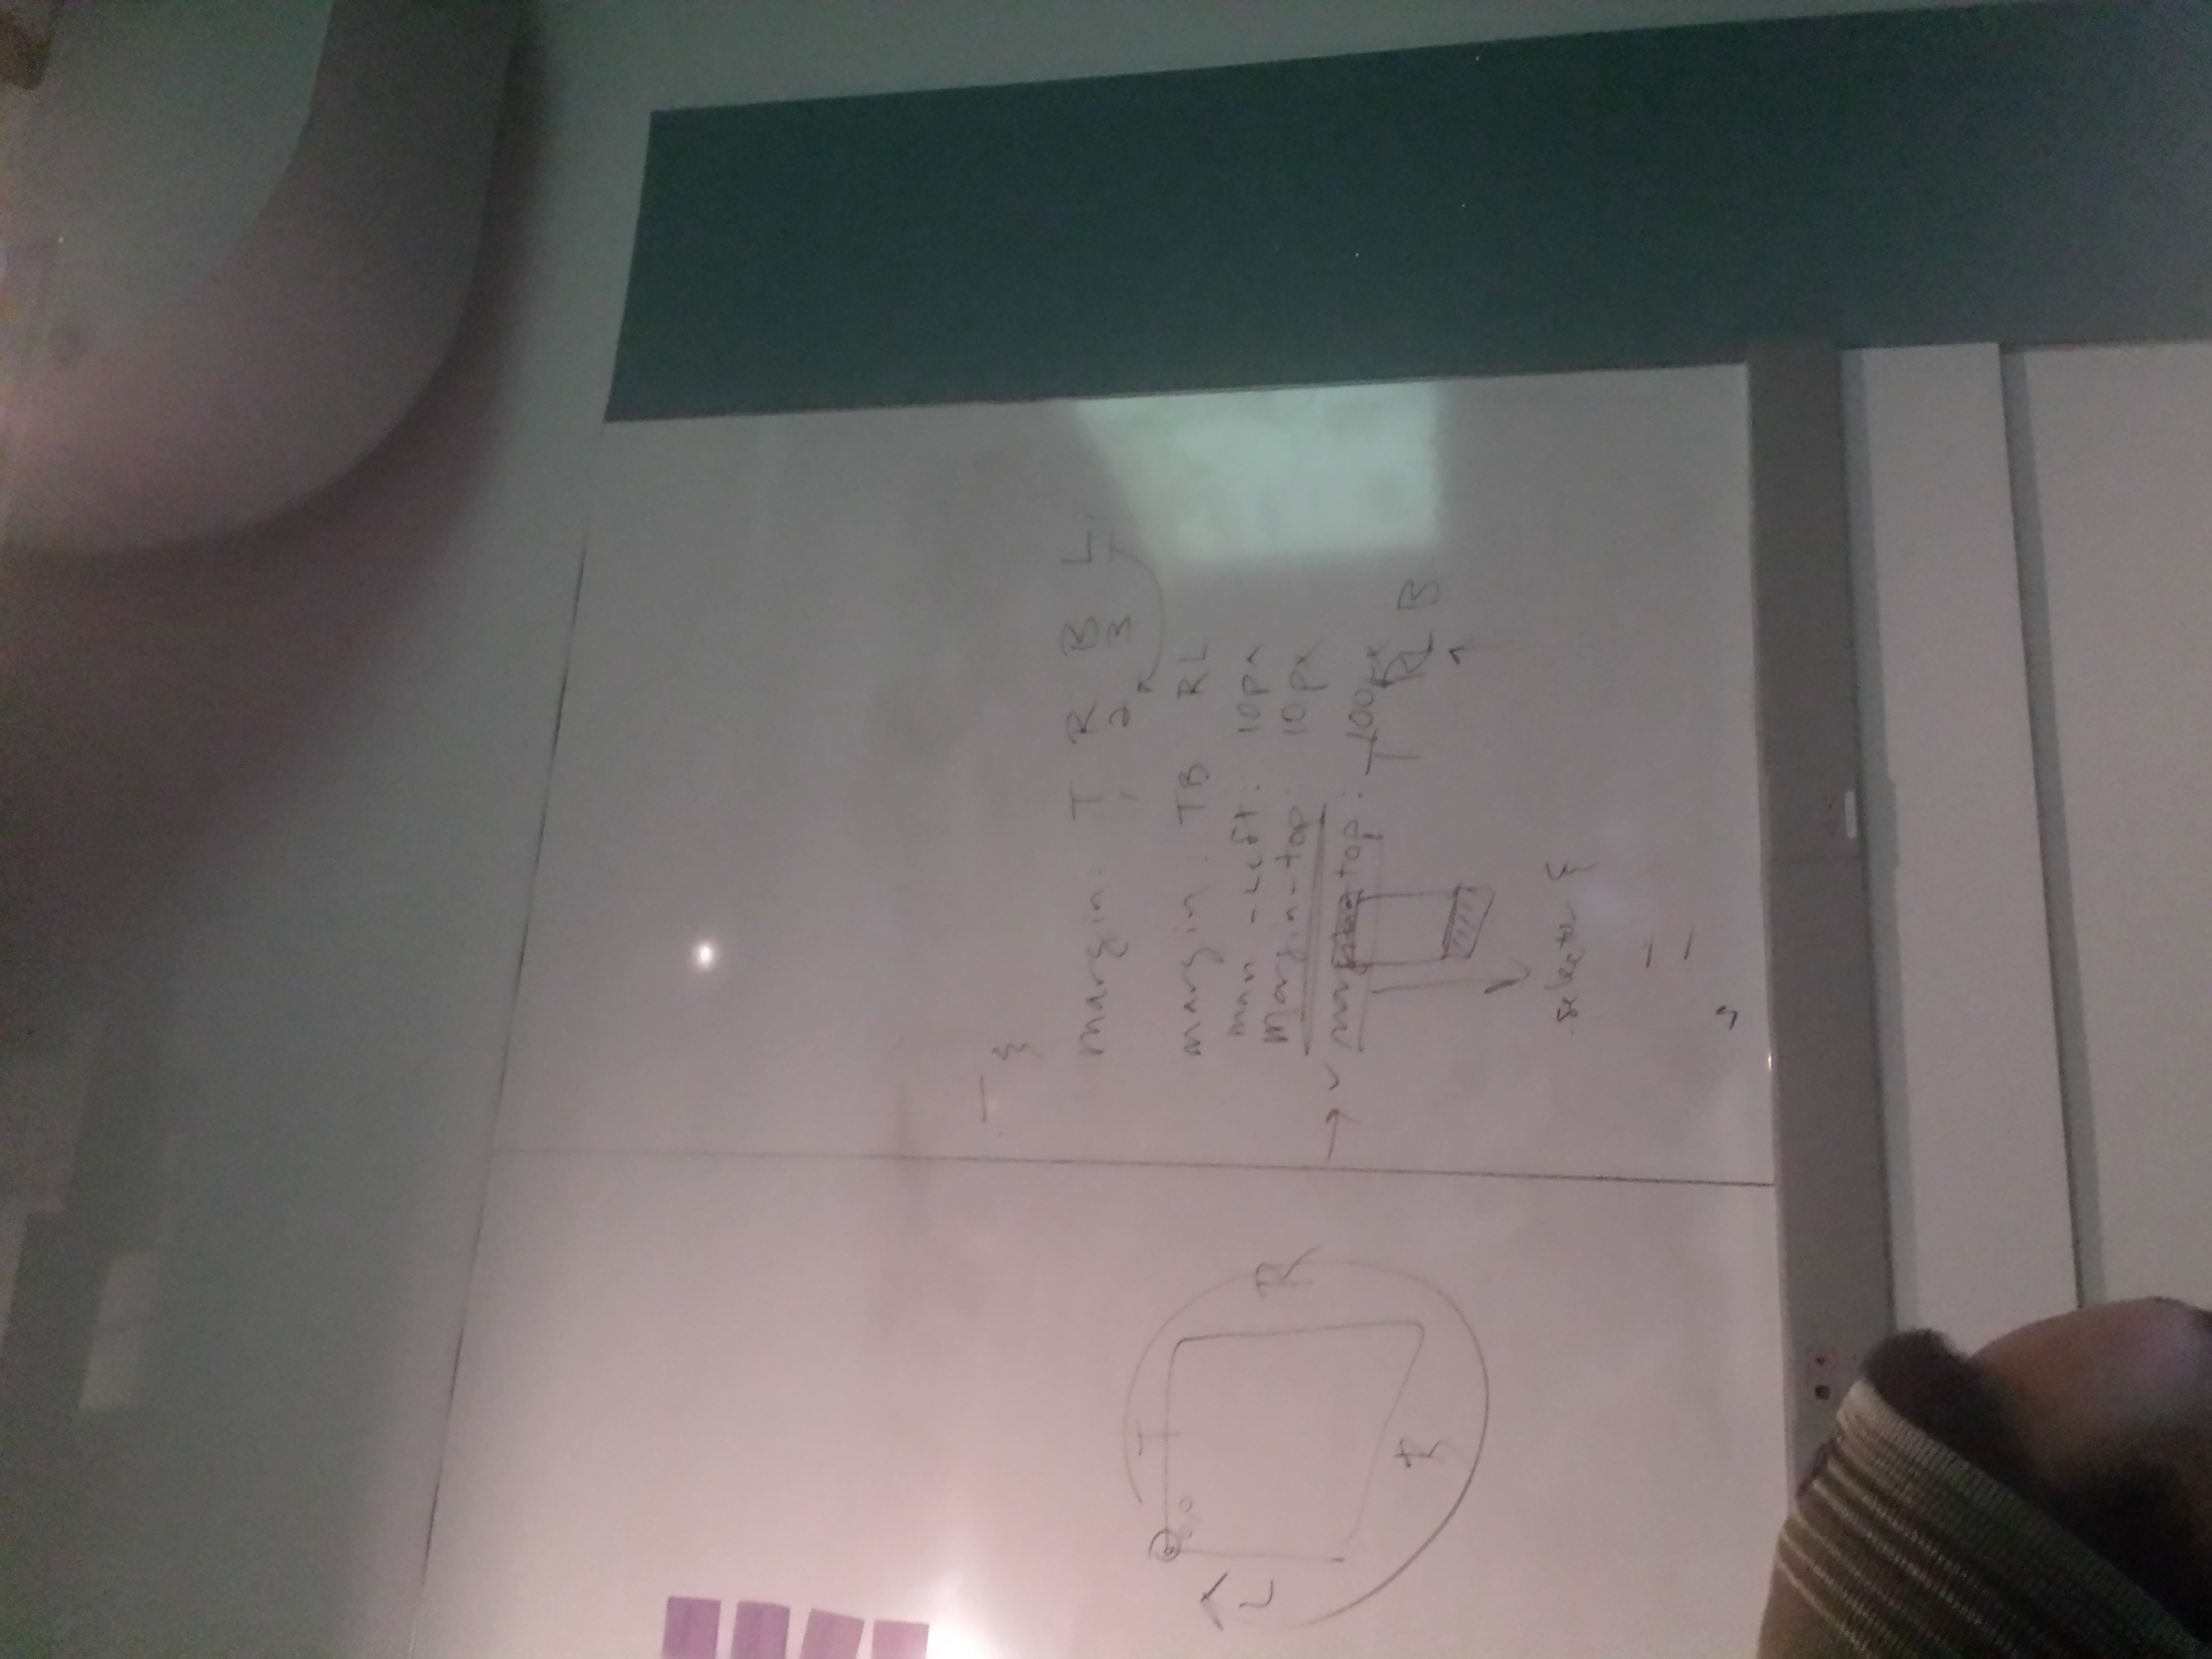 T
0,0
L
R
B
{
margin: T R B L
1 2 3
margin: TB RL
-Left: 10px
Margin-top: 10px
top: 100px
T RL B
.selector {